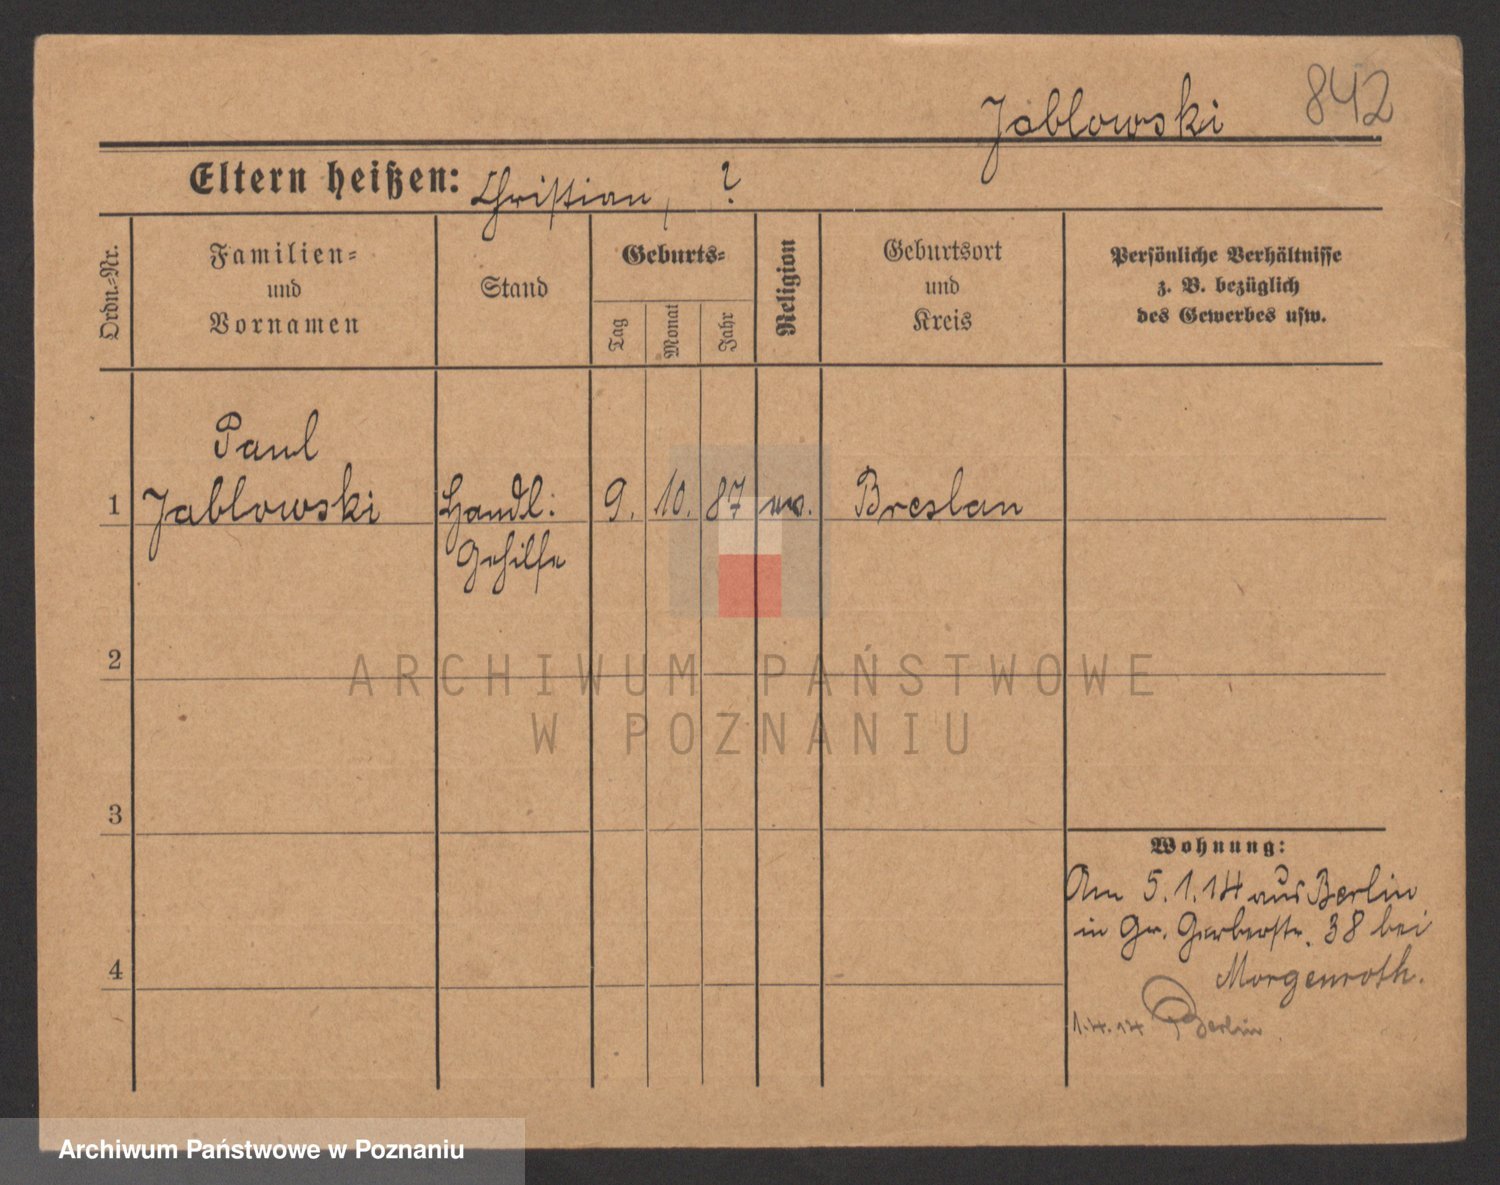 842
Jablowski
Eltern heißen: Christian, ?
Ordn.-Nr.
Familien-
und
Vornamen
Stand
Geburts-
Tag
Monat
Jahr
Religion
Geburtsort
und
Kreis
Persönliche Verhältnisse
z. B. bezüglich
des Gewerbes usw.
Paul
1 Jablowski Handl: 9. 10. 87 mos. Breslau
Gehilfe
2
ARCHIWUM PAŃSTWOWE
W POZNANIU
3
Wohnung:
Am 5.1.14 aus Berlin
in Gr. Gerberstr. 38 bei
Morgenroth.
4
1.4.14 Berlin
Archiwum Państwowe w Poznaniu